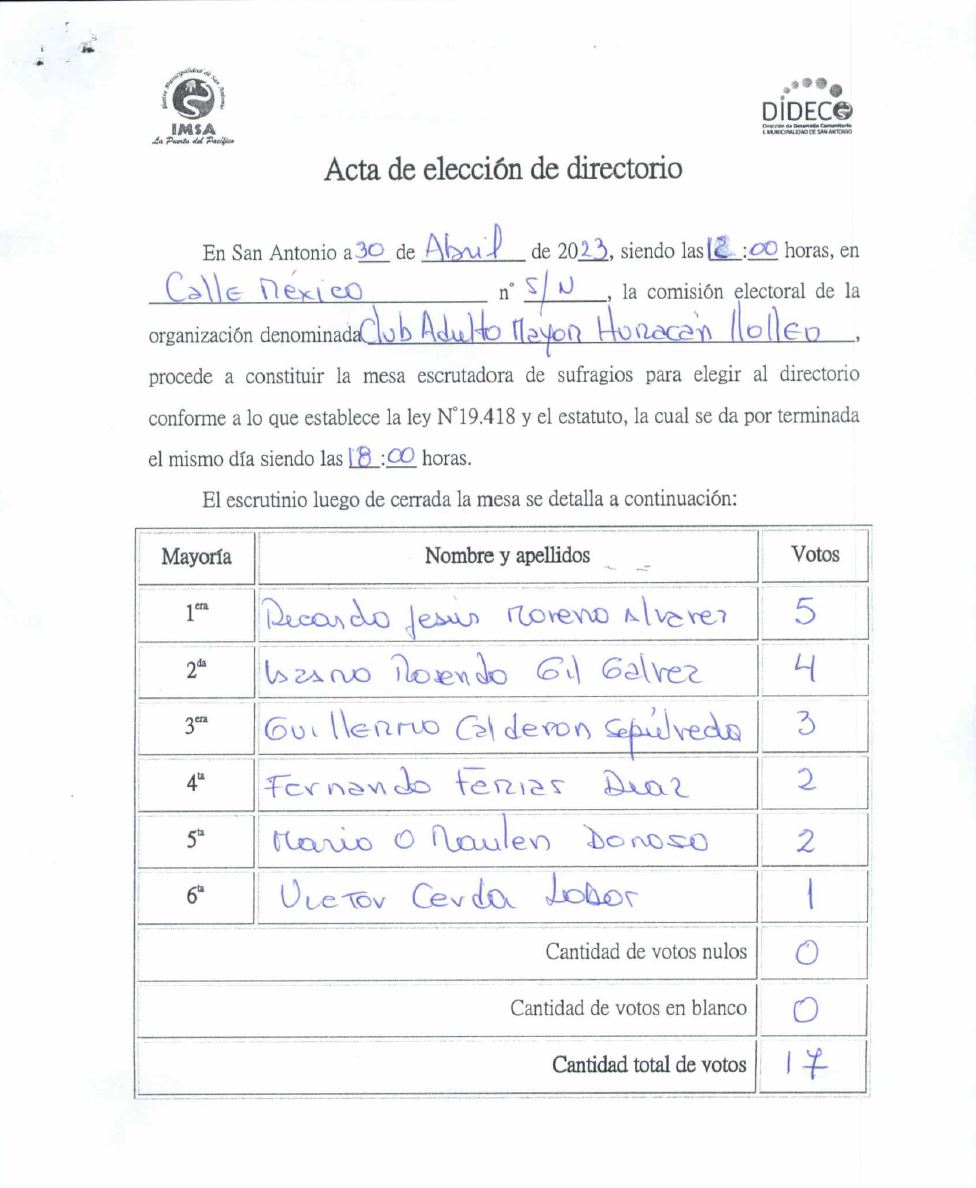 Ilustre Municipalidad de San Antonio
IMSA
La Puerta del Pacífico
DIDECO
Dirección de Desarrollo Comunitario
I. MUNICIPALIDAD DE SAN ANTONIO
Acta de elección de directorio
En San Antonio a 30 de Abril de 2023, siendo las 12:00 horas, en
Calle México n° S/N, la comisión electoral de la
organización denominada Club Adulto Mayor Huracán Llolleo,
procede a constituir la mesa escrutadora de sufragios para elegir al directorio
conforme a lo que establece la ley N°19.418 y el estatuto, la cual se da por terminada
el mismo día siendo las 18:00 horas.
El escrutinio luego de cerrada la mesa se detalla a continuación:
Mayoría Nombre y apellidos Votos
1era Recardo Jesús Moreno Alvarez 5
2da Rosendo Gil Galvez 4
3era Guillermo Calderon Sepúlveda 3
4ta Fernando Ferias Diaz 2
5ta Mario O Maulen Donoso 2
6ta Victor Cerda Lobor 1
Cantidad de votos nulos 0
Cantidad de votos en blanco 0
Cantidad total de votos 17